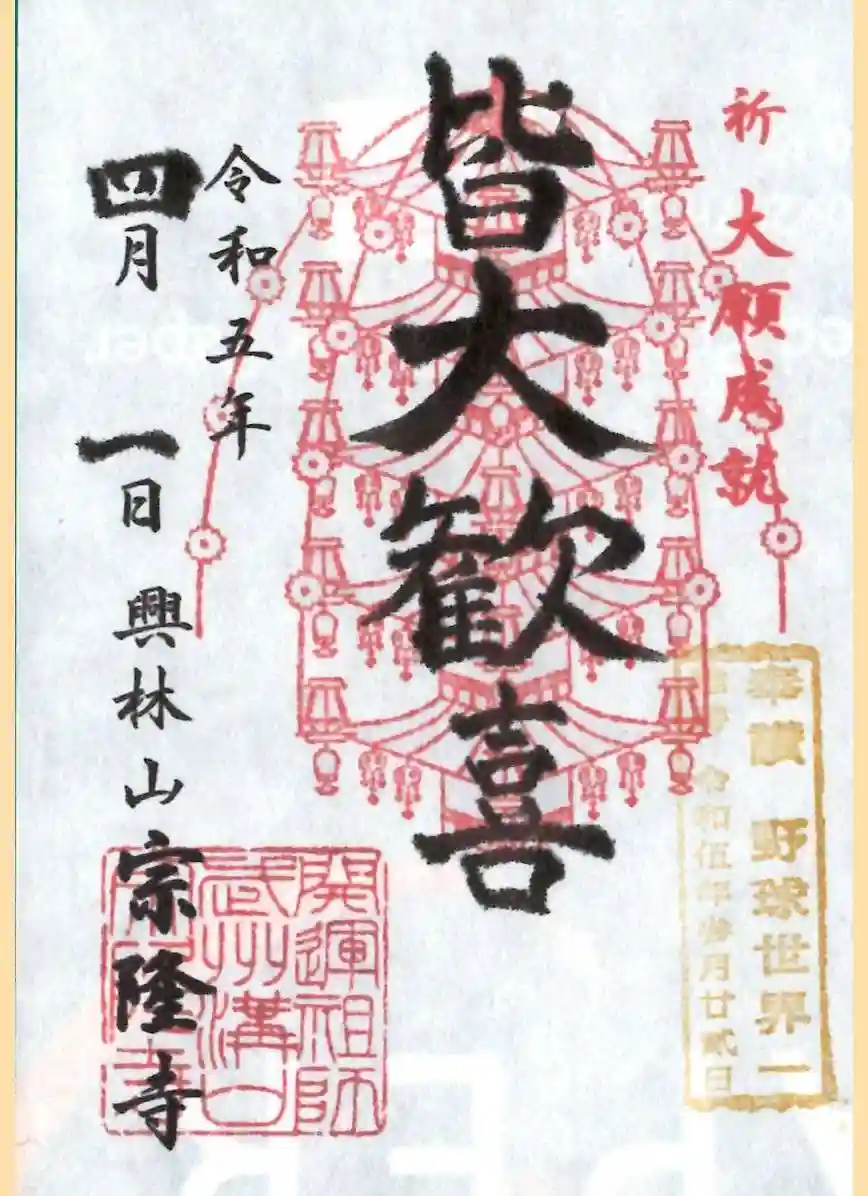 祈 大願成就
奉讃 野球世界一
令和伍年参月廿貳日
皆大歓喜
令和五年
四月 一日 興林山 宗隆寺
開運祖師
武州溝口
宗隆寺